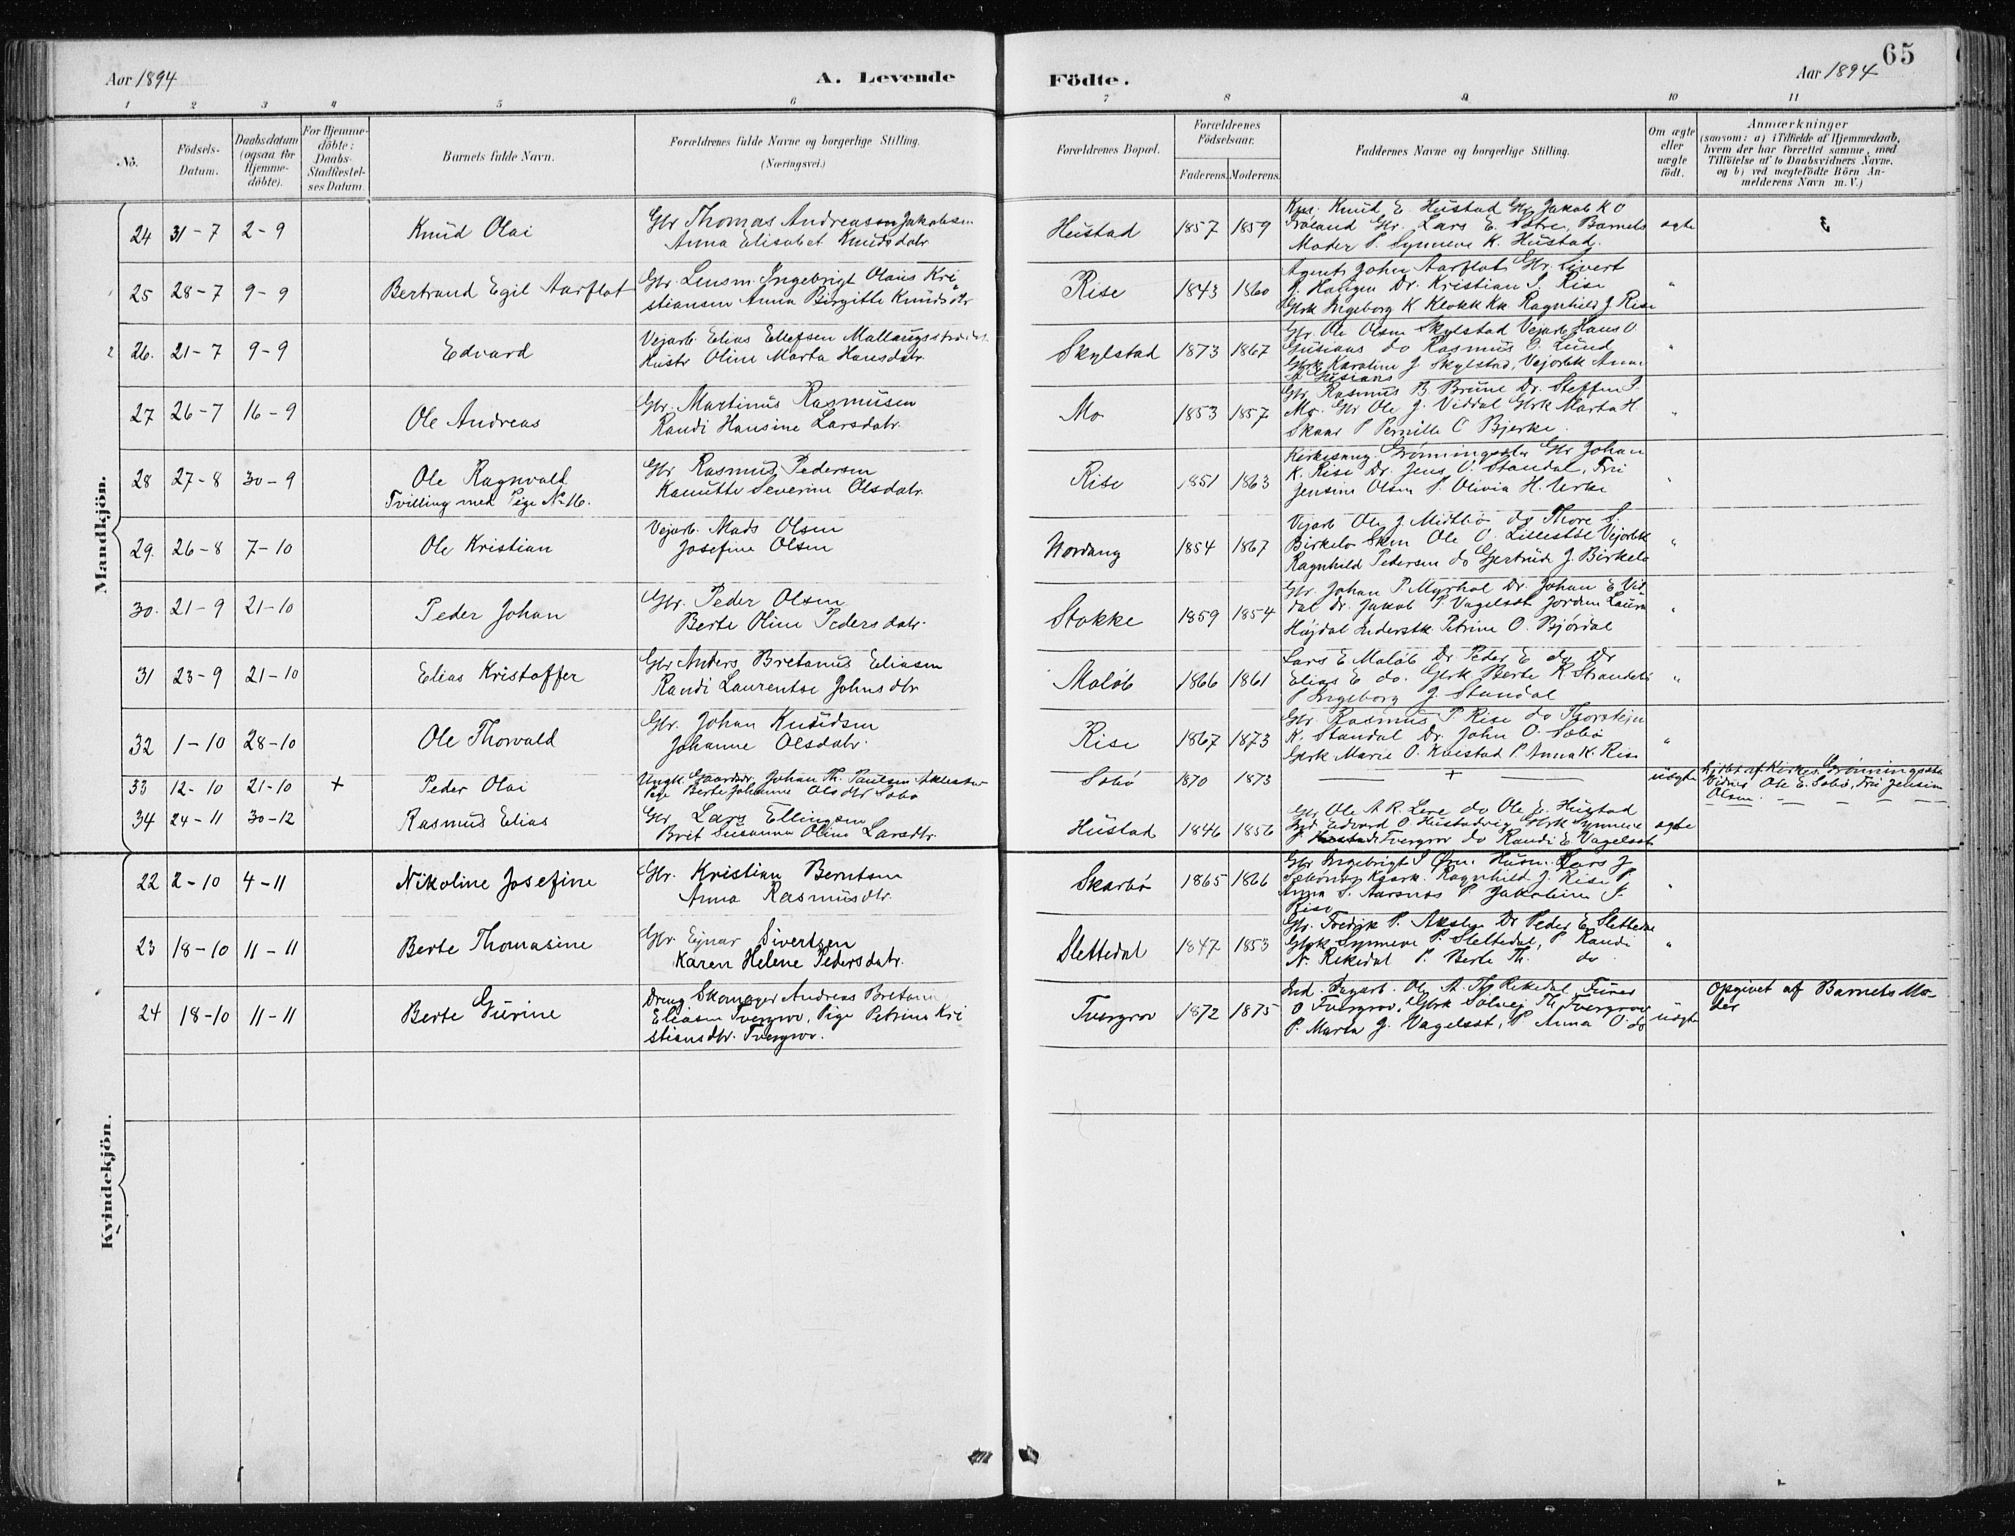 65
Aar 1894
A. Levende
Födte.
Aar 1894
1 2 3 4 5 6 7 8 9 10 11
No.
Födsels-
Datum.
Daabsdatum
(ogsaa for
Hjemme-
döbte).
For Hjemme-
döbte:
Daabs-
Stadfæstel-
ses Datum.
Barnets fulde Navn.
Forældrenes fulde Navne og borgerlige Stilling.
(Næringsvei.)
Forældrenes Bopæl.
Forældrenes
Födselsaar.
Faderens. Moderens.
Faddernes Navne og borgerlige Stilling.
Om ægte
eller
uægte
födt.
Anmærkninger
(saasom: a) i Tilfælde af Hjemmedaab,
hvem der har forrettet samme, med
Tilföielse af to Daabsvidners Navne,
og b) ved uægtefödte Börn An-
melderens Navn m. V.)
Mandkjön.
24 31-7 2-9 Knud Olai
Gbr Thomas Andreassen Jakobsen
Anna Elisabet Knudsdatr.
Hustad 1857 1859
Knud E Hustad Gbr Jakob K O
Gbr. Lars E. Barnets
Moder P. Synneve K. Hustad.
ægte
25 28-7 9-9 Bertrand Egil Aarflot
Gbr. Lensm. Ingebrigt Olaus Kri
stiansen Anna Birgitte Knudsdtr
Rise 1843 1860
Agent John Aarflot Gbr Sivert
J. Haugen Dr. Kristian S. Rise
Gbrk Ingeborg K Klokk Ragnhild J. Rise
"
26. 21-7 9-9 Edvard
Vejarb. Elias Ellefsen
Hustr Oline Marta Hansdatr.
Skylstad 1873 1867
Gbr. Ole Olsen Skylstad Vejarb Hans O
do Rasmus O. Hund
Gbrk Karoline J Skylstad, Vejarbk Anna
"
27 26-7 16-9 Ole Andreas
Gbr. Martinus Rasmusen
Randi Hansine Larsdatr.
Mo 1853 1857
Gbr. Rasmus B. Brune Dr. Steffen S.
Mo. Gbr Ole J. Viddal Gbrk Marta H.
Skaar P Pernille O Bjerke.
"
28 27-8 30-9 Ole Ragnvald
Tvilling med Pige N. 16.
Gbr Rasmus Pedersen
Kanutte Severine Olsdatr.
Rise 1851 1863
Kirkesang. Grønningsæter Gbr Johan
K. Rise Dr. Jens O. Standal, Fru
Jensine Olsen P. Olivia H. Urke
"
29. 26-8 7-10 Ole Kristian
Vejarb. Mads Olsen
Josefine Olsen
Nordang 1854 1867
Vejarb Ole J Midtbø do Thore S
Birkelo Ole O. Vejarbk
Ragnhild Pedersen do Gjertrud J. Birkelo
"
30. 21-9 21-10 Peder Johan
Gbr. Peder Olsen
Berte Oline Pedersdatr.
Stokke 1859 1854
Gbr. Johan P. Myrhol Dr. Johan E Vid
dal Dr. Jakob P. Vagelsæt Jordm Laura
Højdal Inderstk Petrine O. Bjørdal
"
31 23-9 21-10 Elias Kristoffer
Gbr Anders Bretanus Eliasen
Randi Laurentse Johnsdtr
Maløb 1866 1861
Lars E Maløb Dr. Peder E do Dr
Elias E do. Gbrk Berte R
P Ingeborg J. Standal
"
32 1-10 28-10 Ole Thorvald
Gbr. Johan Knudsen
Johanne Olsdatr.
Rise 1867 1873
Gbr Rasmus P Rise do Thorstein
K. Standal Dr. John O. Sæbø
Gbrk Marie O. P Anna K. Rise
"
33 12-10 21-10 + Peder Olai
Ungk. Gaardbr. Johan Th. Paulsen
Pige Berte Johanne Olsdtr Sæbø
Sæbø 1870 1873
+
uægte
Hj.døbt af Kirkes. Grønningsæter
Vidner Ole E. Sæbø, Fru Jensine
Olsen.
34 24-11 30-12 Rasmus Elias
Gbr Lars Ellingsen
Brit Susanna Oline Larsdtr.
Hustad 1846 1856
Gbr Ole A R. do Ole E. Hustad
Edvard O Hustadvig Gbrk Synneve
J Tvergrov do Randi E Vagelsæt
ægte
Kvindekjön.
22 2-10 4-11 Nikoline Josefine
Gbr. Kristian Berntsen
Anna Rasmusdtr.
Skarbø 1865 1866
Gbr Ingebrigt S Husm. Lars J
Ragnhild J. Rise P.
Anna S. Aarsnes P Jakobine J.
Rise
"
23 18-10 11-11 Berte Thomasine
Gbr Ejnar Sivertsen
Karen Helene Pedersdatr.
Slettedal 1847 1853
Gbr. Fredrik P. Dr Peder E Slettedal
Gbrk Synneve P. Slettedal, P Randi
N. Rekedal P. Berte Th. do
"
24 18-10 11-11 Berte Gurine
Dreng Skomager Andreas Bretan
Eliasen Tvergrov, Pige Petrine Kri
stiansdtr. Tvergrov.
Tvergrov 1872 1875
Ind. Ole A. Th Rekedal
O Tvergrov, Gbrk Solvej Th. Tvergrov
P. Marta J. Vagelsæt, P Anna O. do
uægte
Opgivet af Barnets Mo-
der